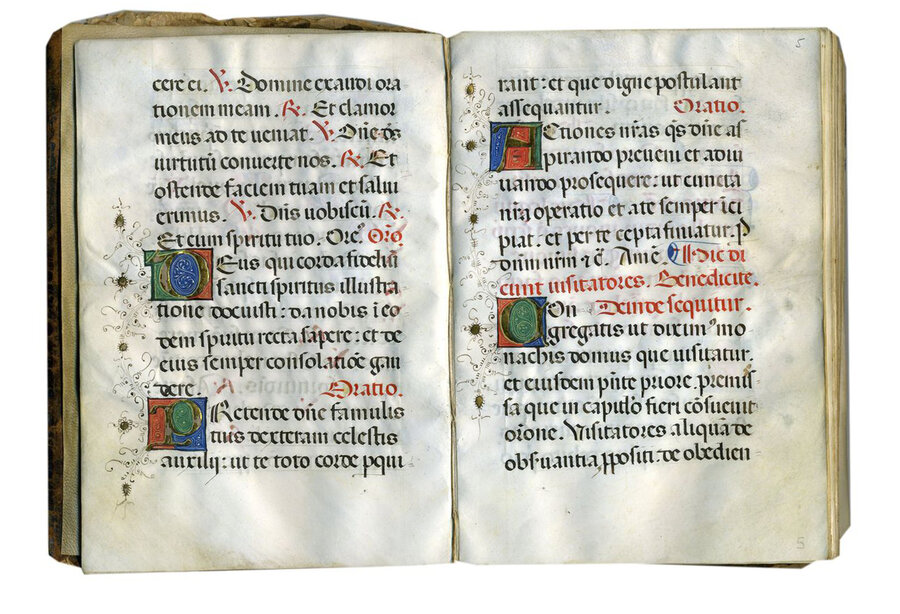 cere ei. ℣. Domine exaudi ora
tionem meam. ℟. Et clamor
meus ad te ueniat. ℣. Dñe dš
uirtutũ conuerte nos. ℟. Et
ostende faciem tuam et salui
erimus. ℣. Dñs uobiscũ. ℟.
Et cum spiritu tuo. Ore. Orõ
Deus qui corda fideliũ
sancti spiritus illustra
tione docuisti: da nobis ĩ eo
dem spiritu recta sapere: et de
eius semper consolatiõe gau
dere. A. Oratio.
Pretende dñe famulis
tuis dexteram celestis
auxilij: ut te toto corde ꝑqui
5
rant: et que digne postulant
assequantur. Oratio.
Actiones nr̃as qs dñe as
pirando preueni et adiu
uando prosequere: ut cuncta
nr̃a operatio et a te semper ĩci
piat. et per te cepta finiatur. P
dñm nr̃m ⁊ c̃. Amẽ. Hic di
cunt uisitatores. Benedicite.
Con Deinde sequitur.
gregatis ut diximꝰ mo
nachis domus que uisitatur.
et eiusdem pñte priore. premis
sa que in capitulo fieri cõsueuit
orõne. Visitatores aliqua de
obẜuantia ꝓpositi: de obedien
5